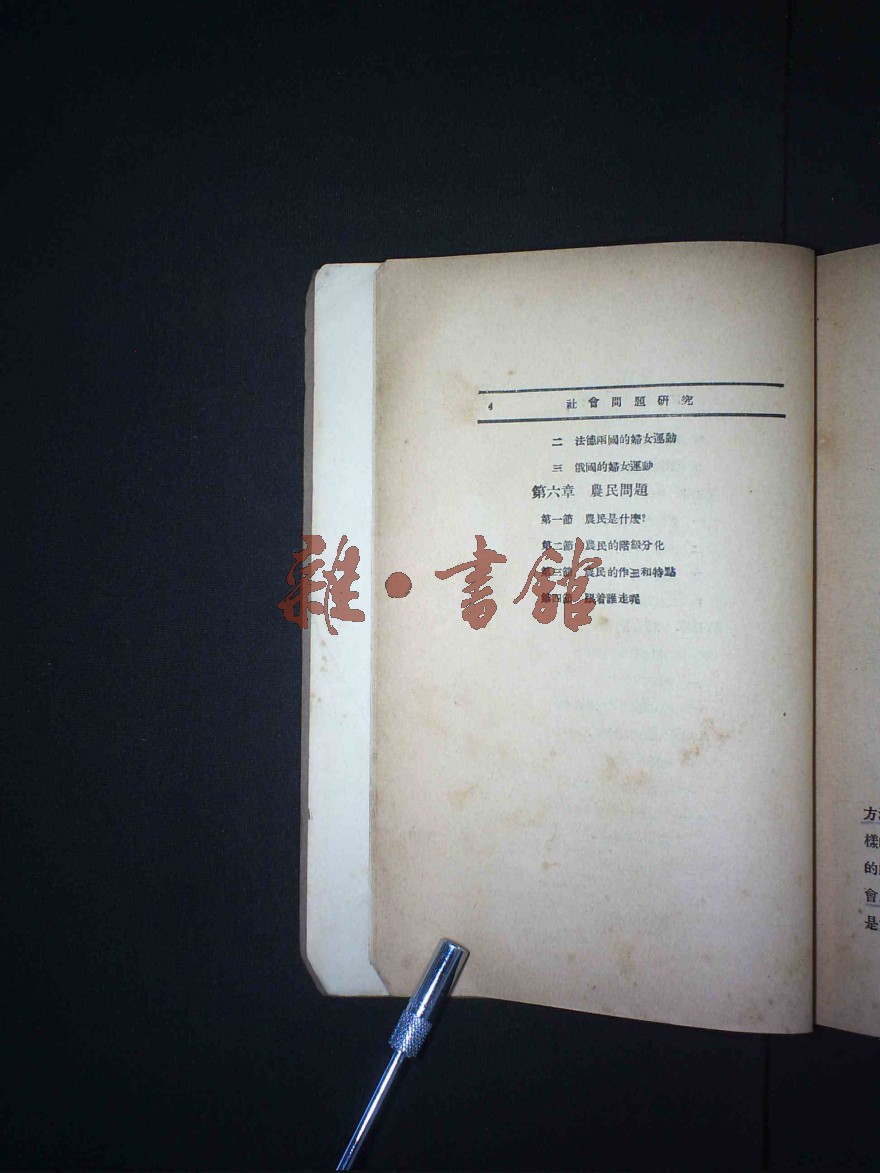 4 社會問題研究
二 法德兩國的婦女運動
三 俄國的婦女運動
第六章 農民問題
第一節 農民是什麼?
第二節 農民的階級分化
第三節 農民的作用和特點
第四節 跟着誰走呢
雜·書館
方
樣
的
會
是